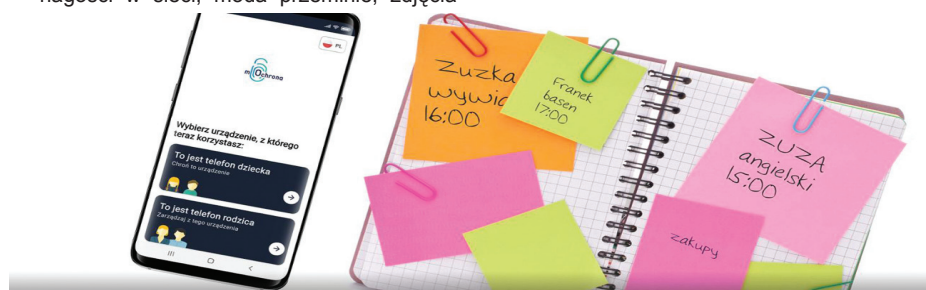 nagości w sieci, moda przeminie, zdjęcia
PL
mOchrona
Wybierz urządzenie, z którego
teraz korzystasz:
To jest telefon dziecka
Chroń to urządzenie
To jest telefon rodzica
Zarządzaj z tego urządzenia
Zuzka
16:00
Franek
basen
17:00
ZUZA
angielski
15:00
zakupy